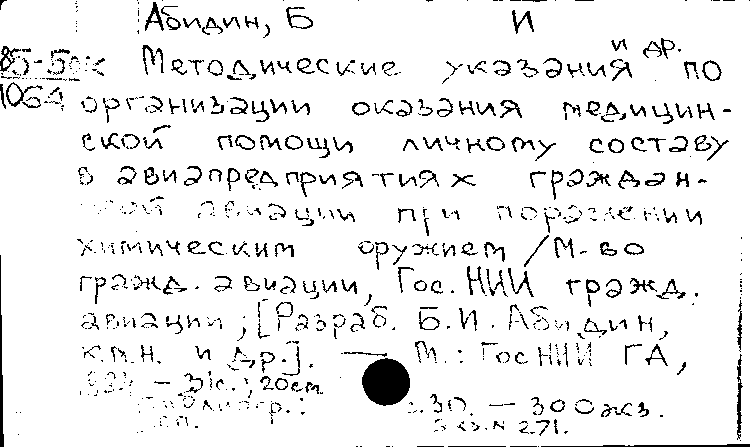 Абидин, Б И
и др.
85-5
1064
Методические указания по
организации оказания медицин-
ской помощи личному составу
в авиапредприятиях граждан-
ской авиации при поражении
химическим оружием / М-во
гражд. авиации, Гос. НИИ гражд.
авиации; [Разраб. Б. И. Абидин,
к.м.н. и др.]. — М.: ГосНИИ ГА,
— 31с.; 20см
Библиогр.: с.30. — 300экз.
Б кз. N 271.